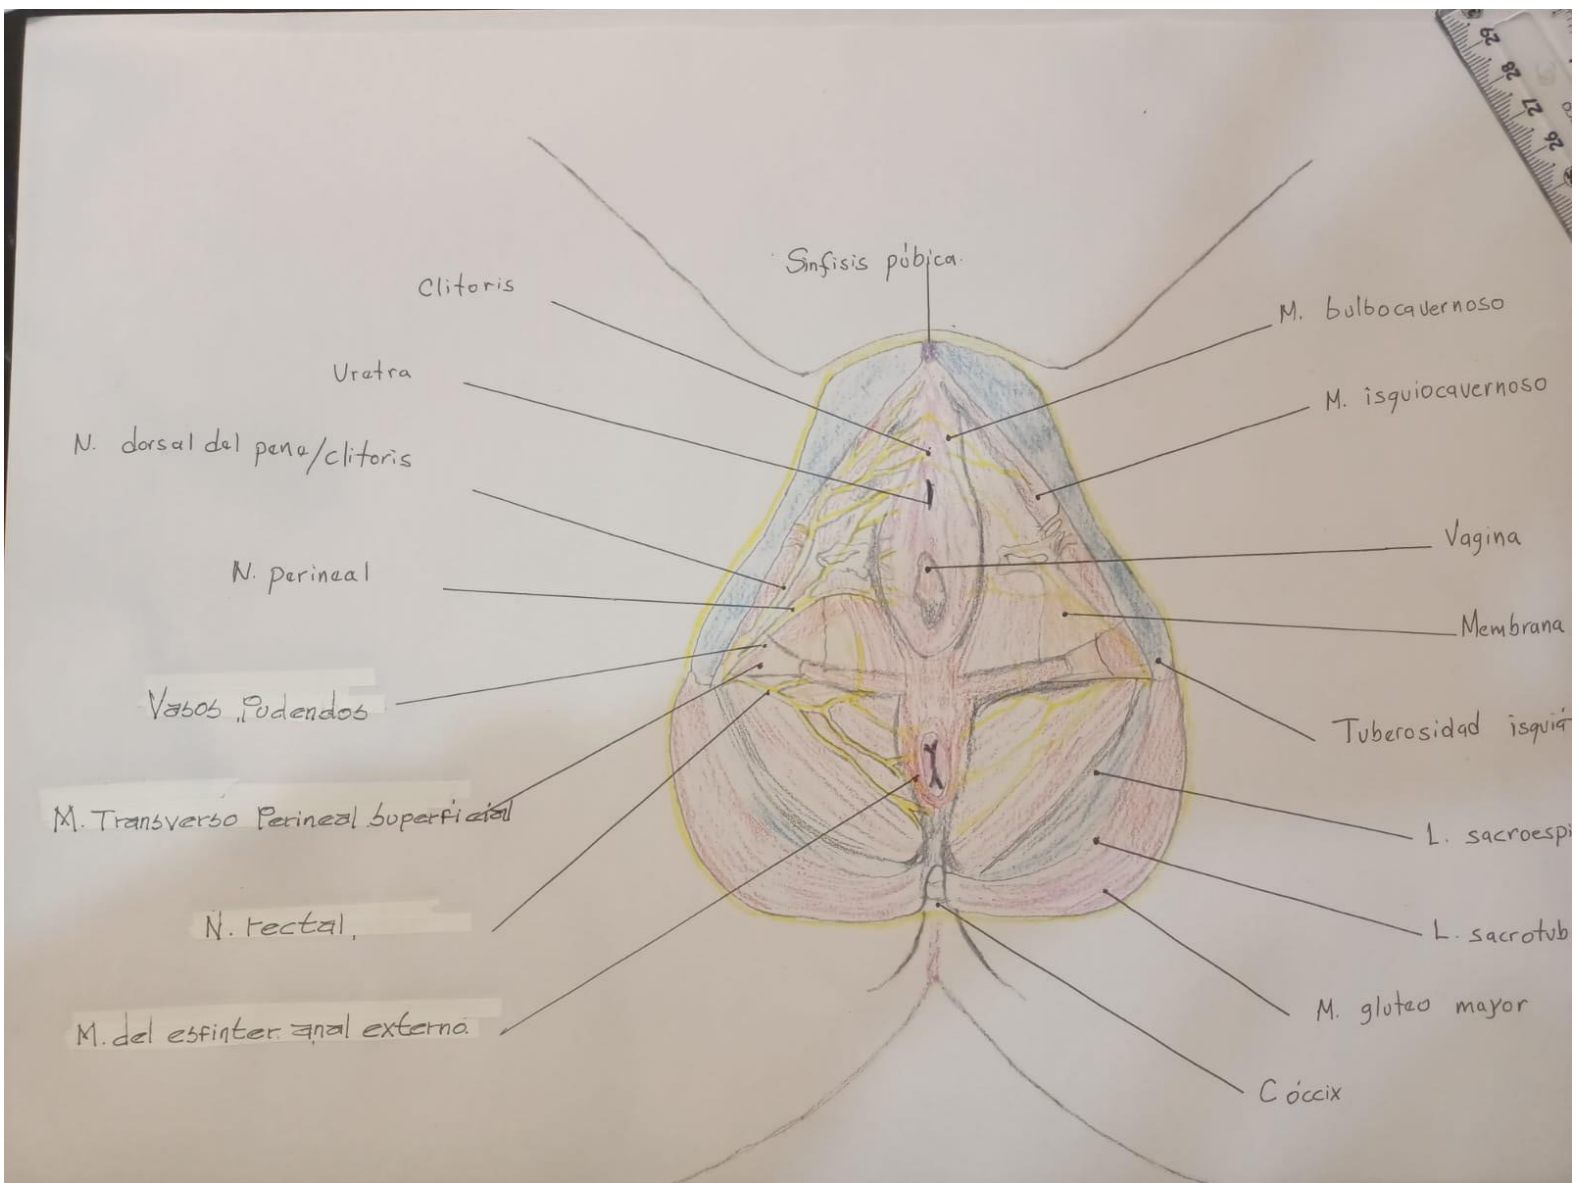 Sínfisis púbica.
Clitoris
Uretra
N. dorsal del pene/clitoris
N. perineal
Vasos Pudendos
M. Transverso Perineal Superficial
N. rectal.
M. del esfinter anal externo.
M. bulbocavernoso
M. isquiocavernoso
Vagina
Membrana
Tuberosidad isquiá
L. sacroespi
L. sacrotub
M. gluteo mayor
Cóccix
29
28
27
26